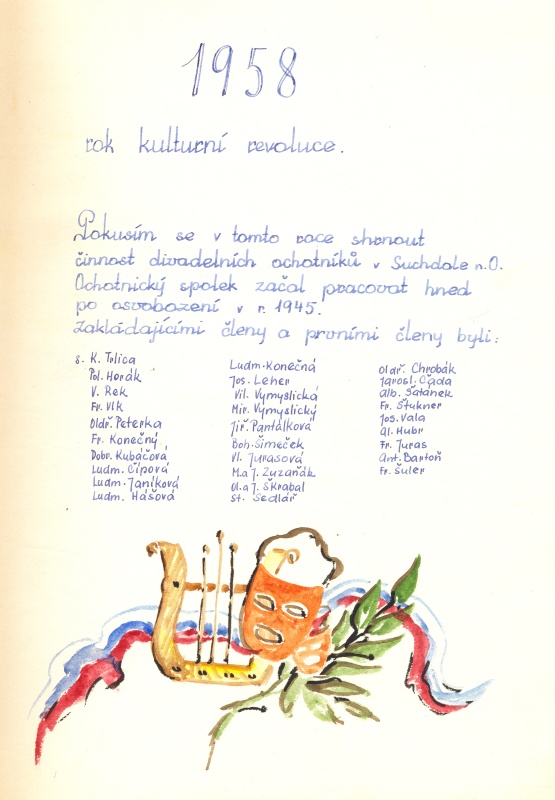 1958
rok kulturní revoluce.
Pokusím se v tomto roce shrnout
činnost divadelních ochotníků v Suchdole n.O.
Ochotnický spolek začal pracovat hned
po osvobození v r. 1945.
Zakládajícími členy a prvními členy byli:
s. K. Tolica
Pol. Horák
V. Rek
Fr. Vlk
Oldř. Peterka
Fr. Konečný
Dobr. Kubáčová
Ludm. Čípová
Ludm. Janíková
Ludm. Hášová
Ludm. Konečná
Jos. Leher
Vil. Vymyslická
Mir. Vymyslický
Jiř. Pantálková
Boh. Šimeček
Vl. Jurasová
M.a J. Zuzaňák
Ol.a J. Škrabal
St. Sedlář
Oldř. Chrobák
Jarosl. Čada
Alb. Šatánek
Fr. Štukner
Jos. Vala
Al. Hubr
Fr. Juras
Ant. Bartoň
Fr. Šuler